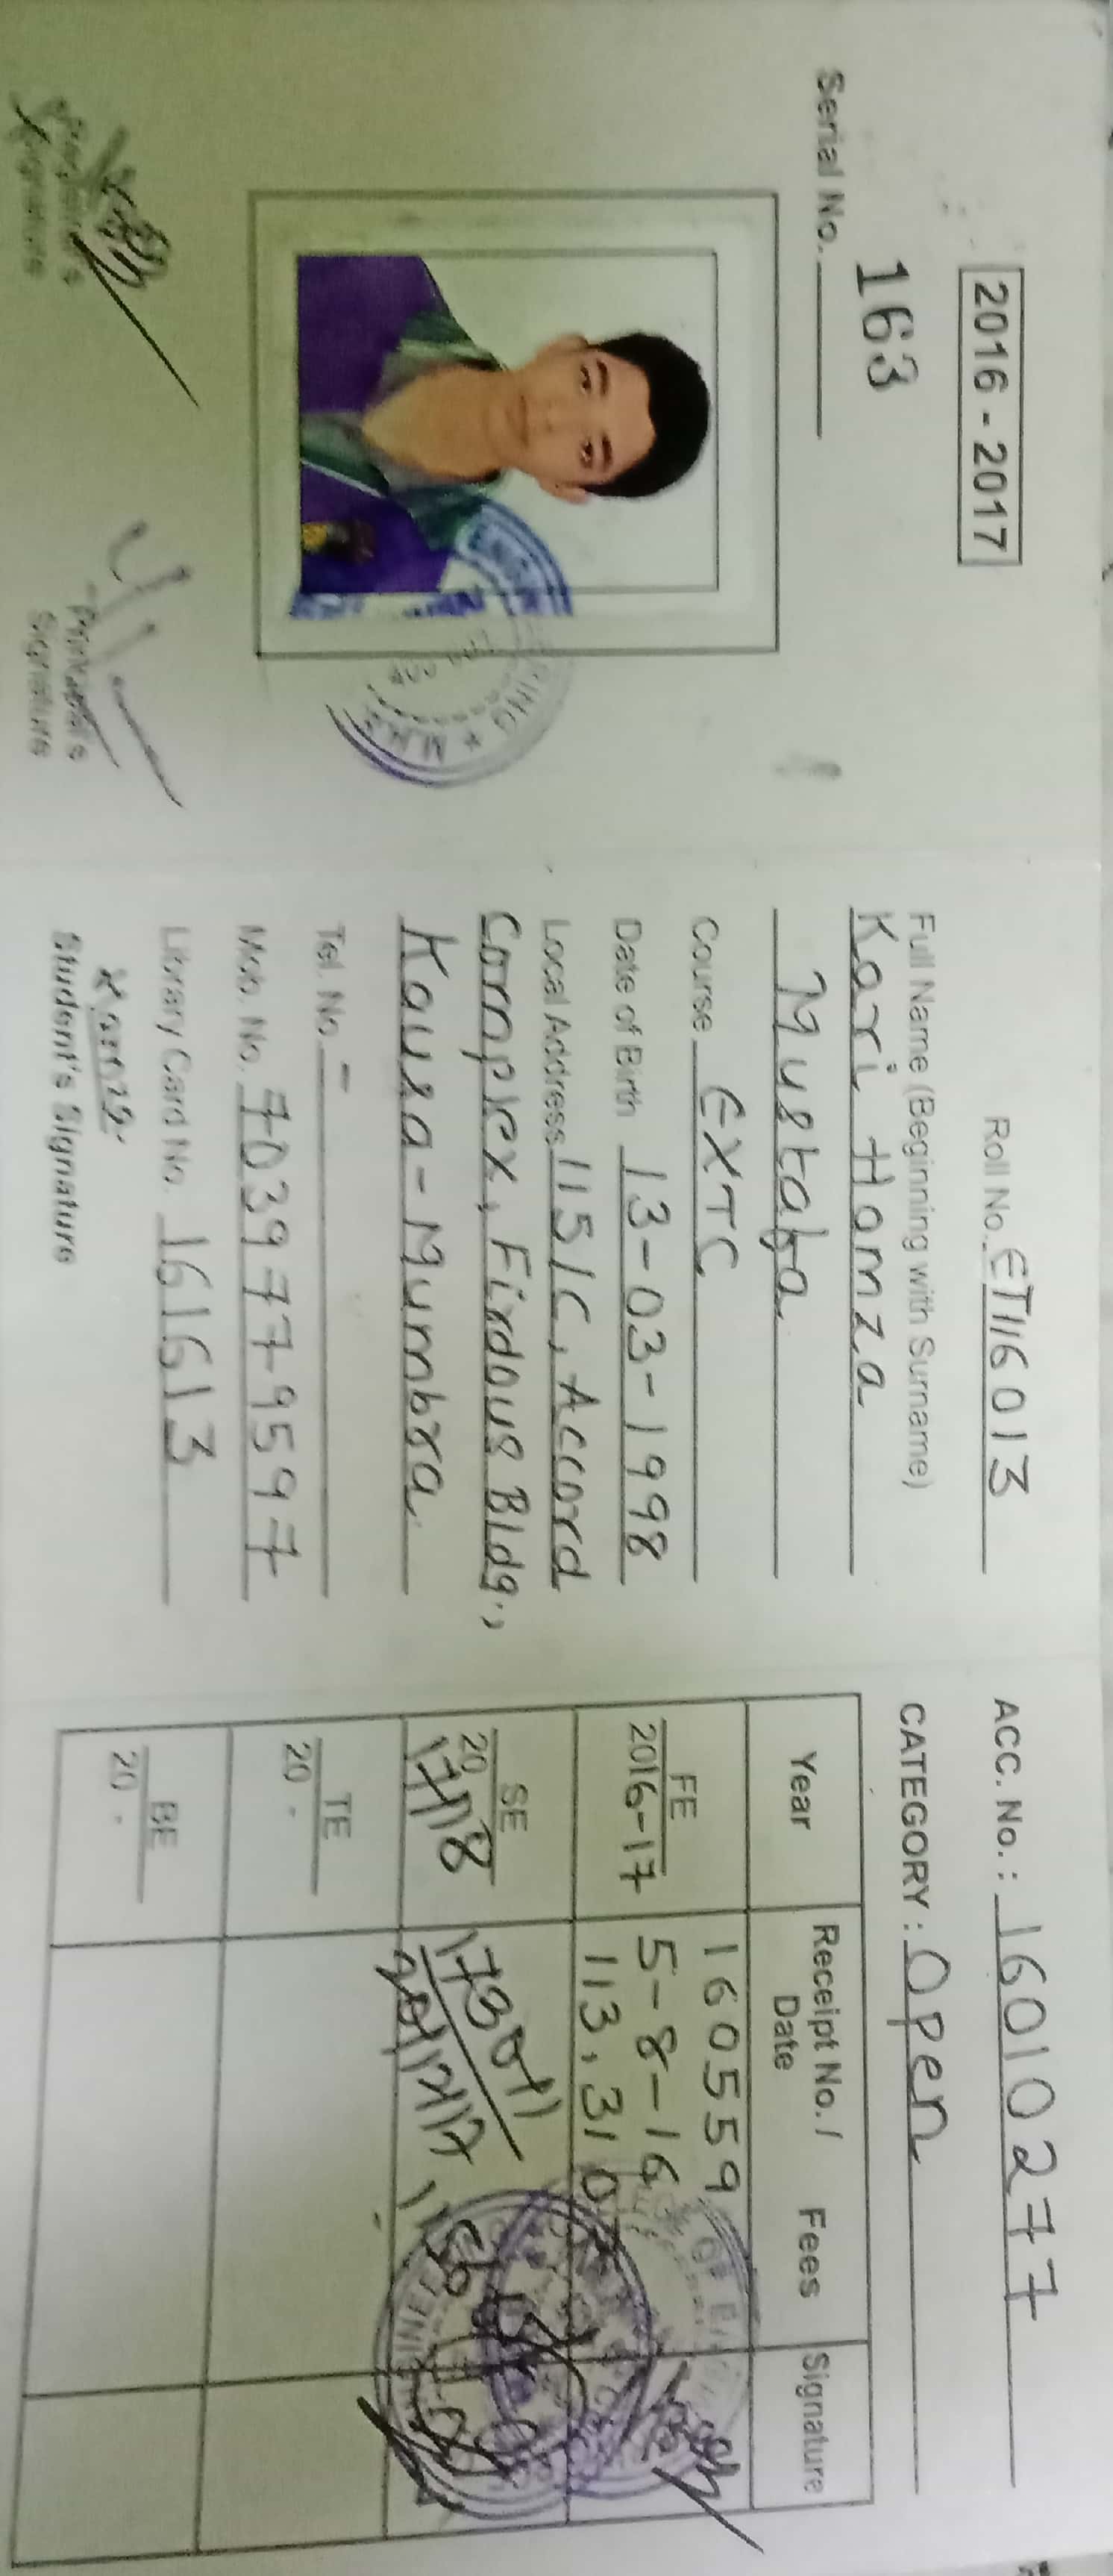 2016 - 2017
Serial No. 163
Principal's
Signature
Roll No. ET116013
Full Name (Beginning with Surname)
Kazi Hamza
Mustafa
Course EXTC
Date of Birth 13-03-1998
Local Address 115/C, Accord
Complex, Firdous Bldg.,
Kausa-Mumbra
Tel. No. -
Mob. No. 7039777-9597
Library Card No. 161613
Student's Signature
ACC. No. : 16010277
CATEGORY : Open
Year Receipt No. / Date Fees Signature
FE 2016-17 160559
5-8-16
113,310
SE 2017/18
TE 20 -
BE 20 -